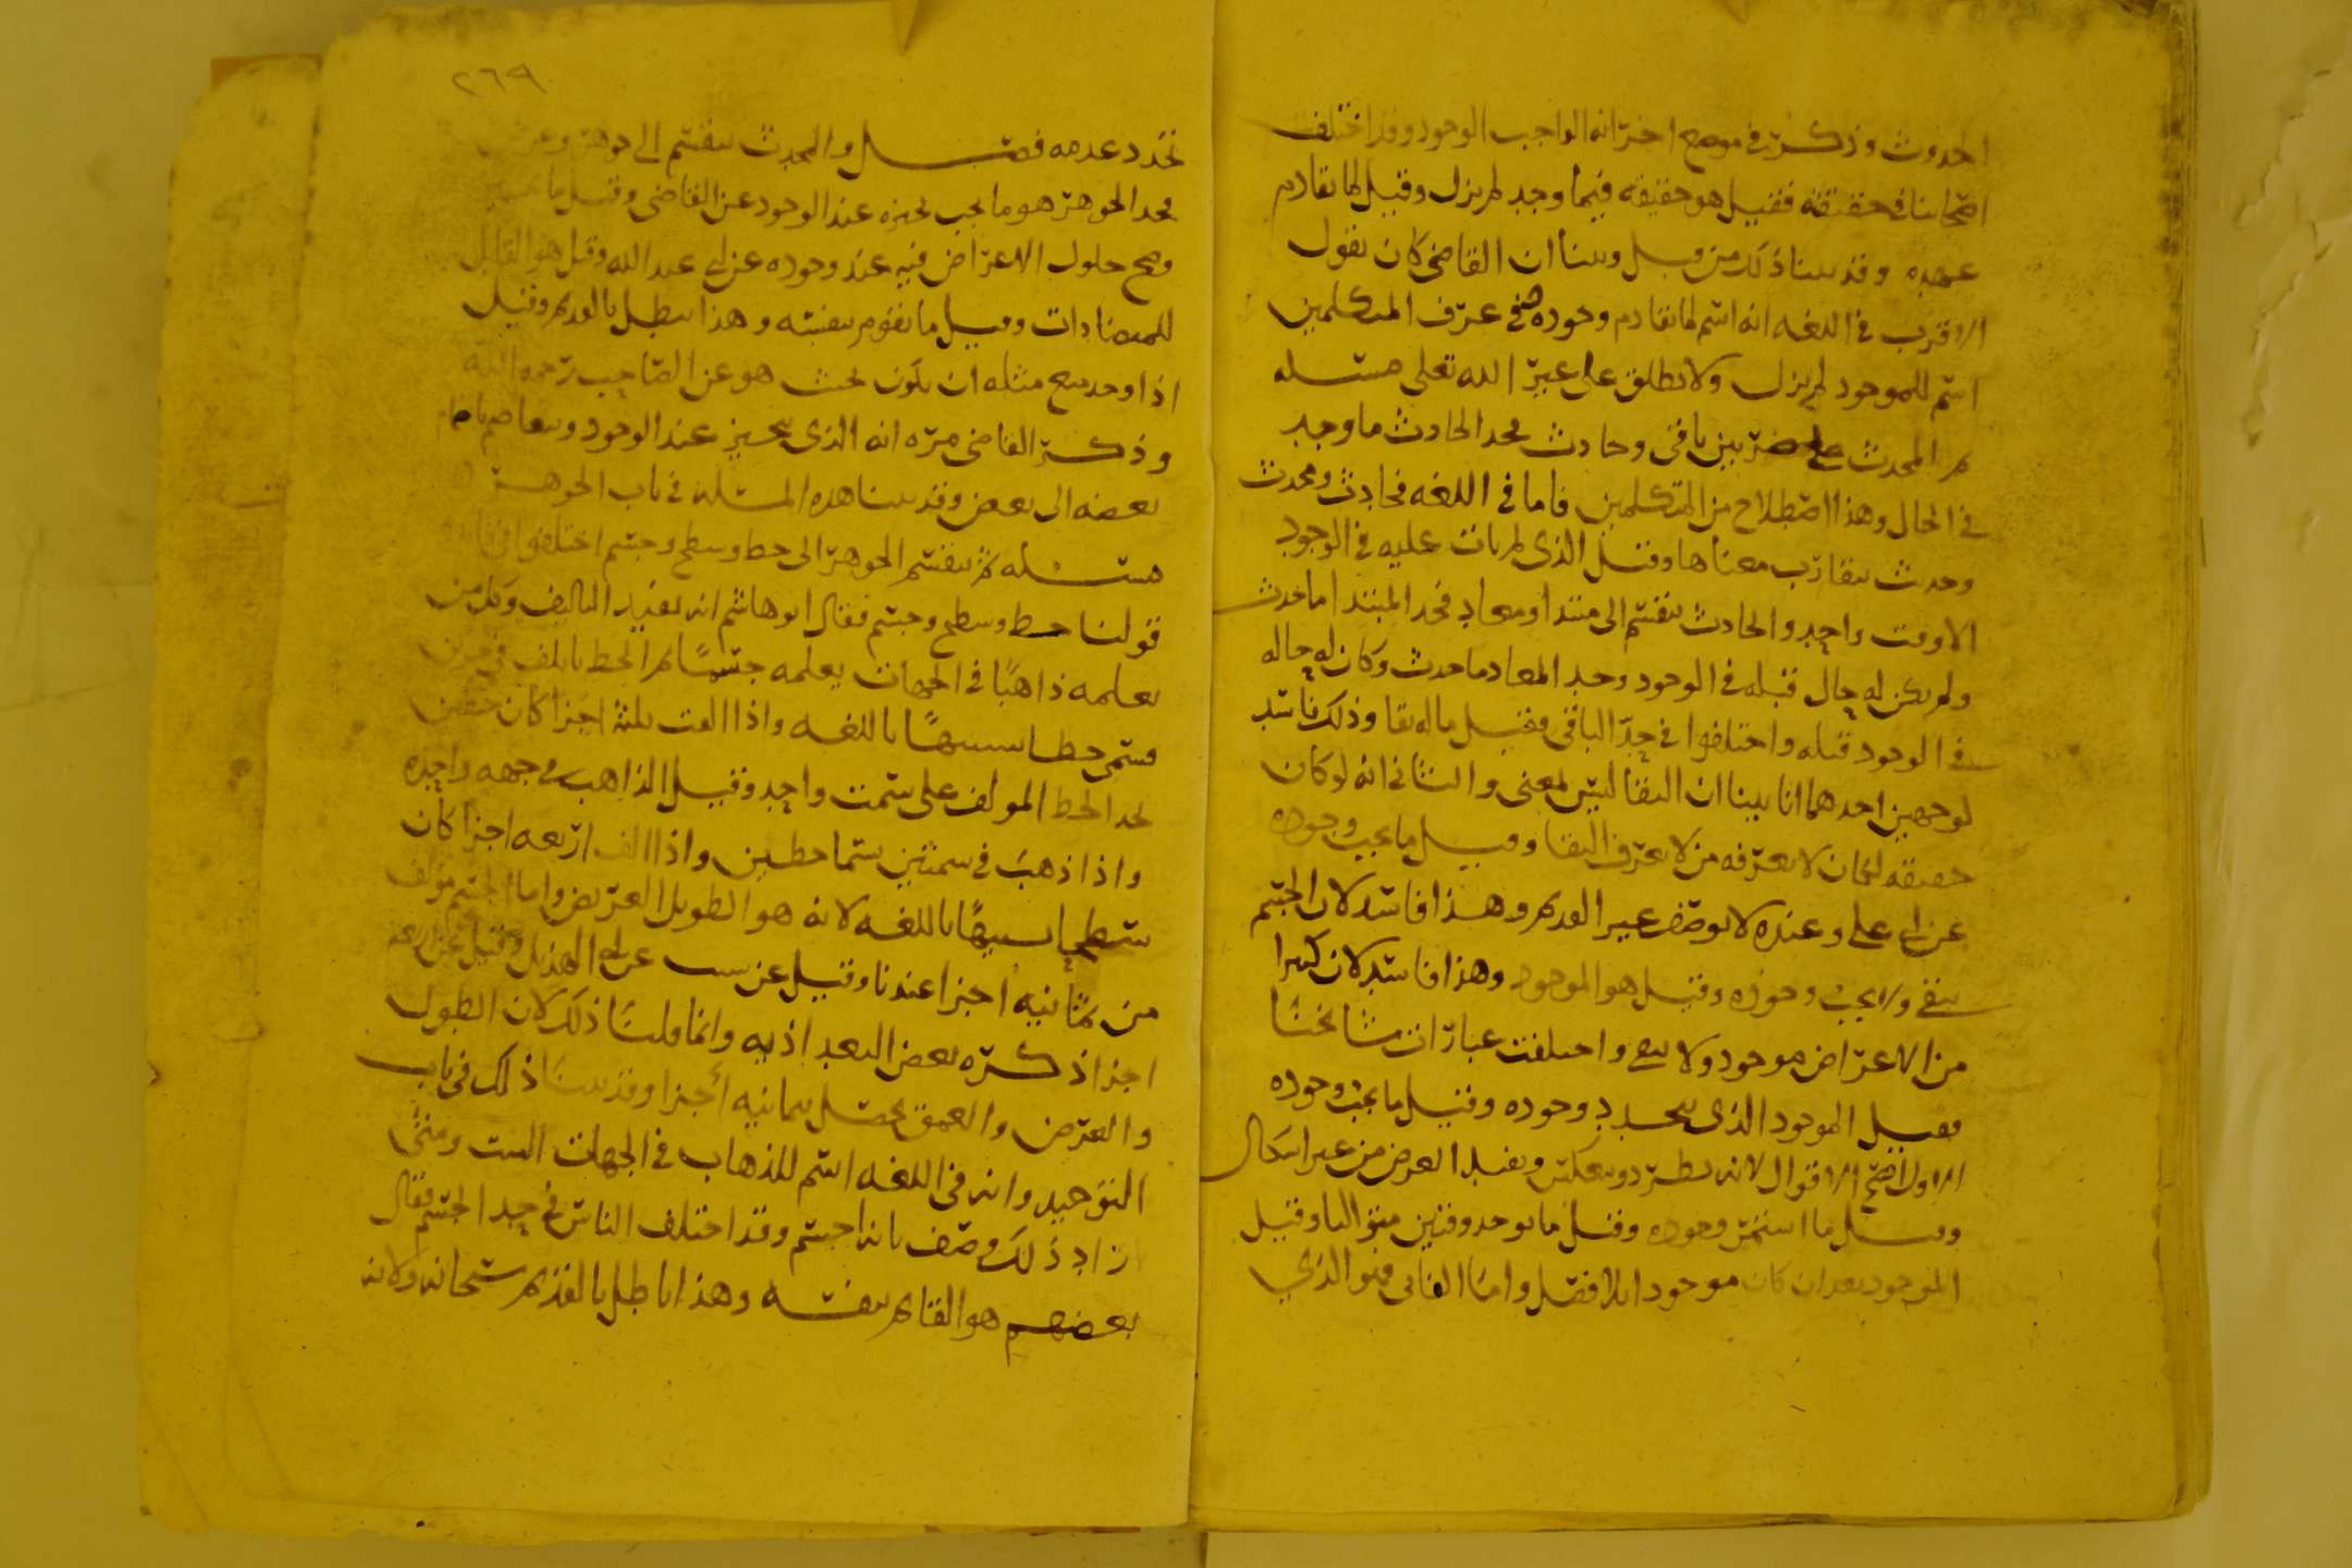 الحدوث وذكر في موضع اخر انه الواجب الوجود وقد اختلف
اصحابنا في حقيقته فقيل هو حقيقه فيما وجد لم يزل وقيل لما تقادم
عهده وقد بينا ذلك من قبل وبينا ان القاضي كان يقول
الاقرب في اللغه انه اسم لما تقادم وجوده في عرف المتكلمين
اسم للموجود لم يزل ولا يطلق على غير الله تعلى مسئله
ثم المحدث على ضربين باقى وحادث فحد الحادث ما وجد
في الحال وهذا اصطلاح من المتكلمين فاما في اللغه فحادث ومحدث
وحدث يتقارب معناها وقيل الذي لم يات عليه في الوجود
الا وقت واحد والحادث ينقسم الى مبتدا ومعاد فحد المبتدا ما حدث
ولم يكن له حال قبله في الوجود وحد المعاد ما حدث وكان له حاله
في الوجود قبله واختلفوا في حد الباقى فقيل ما له بقا وذلك فاسد
لوجهين احدهما انا بينا ان البقا ليس لمعنى والثاني انه لو كان
حقيقه لكان لا يعرفه من لا يعرف البقا وقيل ما يجب وجوده
عن ابي علي وعنده لا يوصف غير القديم وهذا فاسد لان الجسم
يبقى ولا يجب وجوده وقيل هو الموجود وهذا فاسد لان كثيرا
من الاعراض موجود ولا يبقى واختلفت عبارات مشائخنا
فقيل الموجود الذي يتجدد وجوده وقيل ما يجب وجوده
الاول اصح الاقوال لانه يطرد وينعكس ويفيد الغرض من غير اشكال
وقيل ما استمر وجوده وقيل ما يوجد وقتين
الموجود بعد ان كان موجودا فصل واما الفاني فهو الذي
٢٦٩
تجدد عدمه فصل والمحدث ينقسم الى جوهر وعرض
فحد الجوهر هو ما يجب تحيزه عند الوجود عن القاضي وقيل ما
وصح حلول الاعراض فيه عند وجوده عن ابي عبد الله وقيل هو القابل
للمتضادات وقيل ما يقوم بنفسه وهذا يبطل بالقديم وقيل
اذا وجد مع مثله ان يكون بحيث هو عن الصاحب رحمه الله
وذكر القاضي مره انه الذي يتحيز عند الوجود
بعضه الى بعض وقد بينا هذه المسئله في باب الجوهر
مسئله ثم ينقسم الجوهر الى خط وسطح وجسم اختلفوا
قولنا خط وسطح وجسم فقال ابو هاشم انه يفيد التاليف وكل من
يعلمه ذاهبا في الجهات يعلمه جسما ثم الخط تالف في جزين
فسمى خطا تشبيها باللغه واذا الفت ثلثة اجزا كان خطين
فحد الخط المولف على سمت واحد وقيل الذاهب في جهه واحده
واذا ذهب في سمتين سما خطين واذا الف اربعه اجزا كان
سطحا تشبيها باللغه لانه هو الطويل العريض واما الجسم مولف
من ثمانيه اجزا عندنا وقيل عن سته عن ابي الهذيل وقيل عن اربعه
اجزا ذكره بعض البغداذيه وانما قلنا ذلك لان الطول
والعرض والعمق يحصل بثمانيه اجزا وقد بينا ذلك في باب
التوحيد وانه في اللغه اسم للذهاب في الجهات الست ومتى
زاد ذلك وصف بانه اجسم وقد اختلف الناس في حد الجسم فقال
بعضهم هو القائم بنفسه وهذا باطل بالقديم سبحانه ولانه